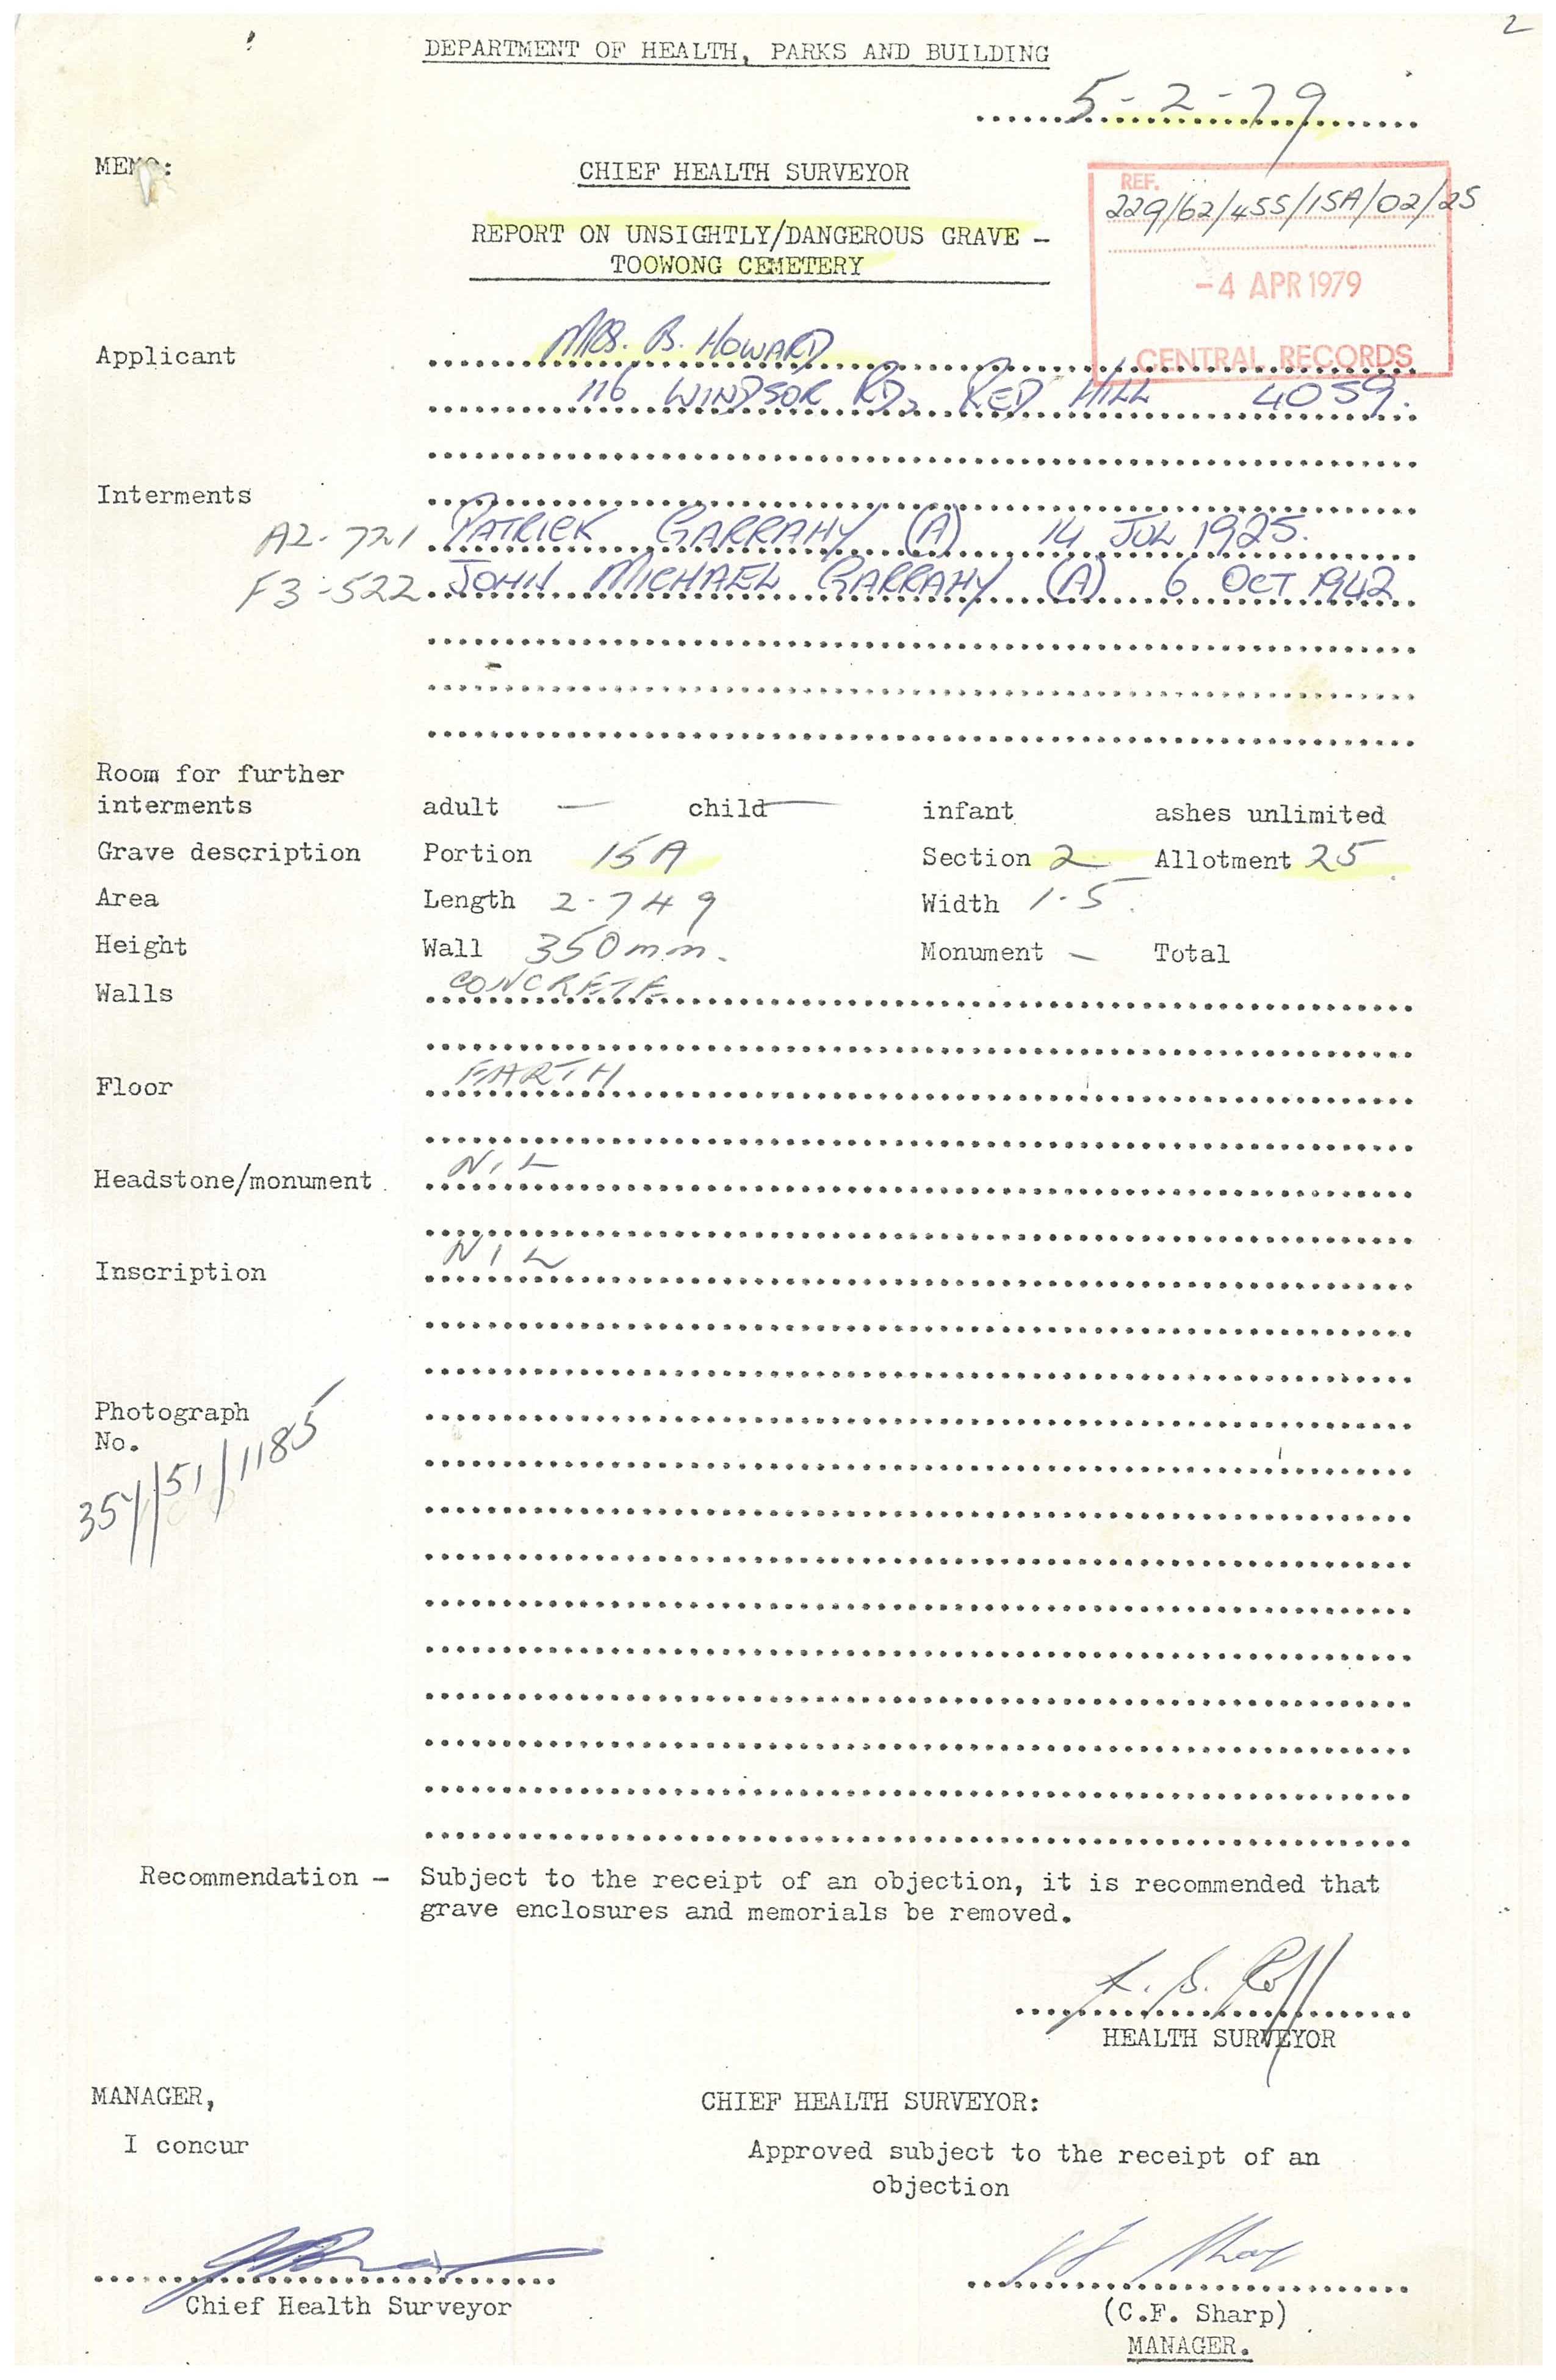 2
DEPARTMENT OF HEALTH, PARKS AND BUILDING
5-2-79
MEMO:
CHIEF HEALTH SURVEYOR
REF.
229/62/455/15A/02/25
REPORT ON UNSIGHTLY/DANGEROUS GRAVE -
TOOWONG CEMETERY
-4 APR 1979
CENTRAL RECORDS
Applicant MRS. B. HOWARD
116 WINDSOR RD, RED HILL 4059.
Interments
A2-721 PATRICK GARRAHY (A) 14 JUL 1925.
F3-522 JOHN MICHAEL GARRAHY (A) 6 OCT 1942
Room for further
interments adult — child — infant ashes unlimited
Grave description Portion 15A Section 2 Allotment 25
Area Length 2.749 Width 1.5
Height Wall 350mm. Monument — Total
Walls CONCRETE
Floor EARTH
Headstone/monument NIL
Inscription NIL
Photograph
No.
354/51/1185
Recommendation - Subject to the receipt of an objection, it is recommended that
grave enclosures and memorials be removed.
HEALTH SURVEYOR
MANAGER, CHIEF HEALTH SURVEYOR:
I concur Approved subject to the receipt of an
objection
Chief Health Surveyor
(C.F. Sharp)
MANAGER.